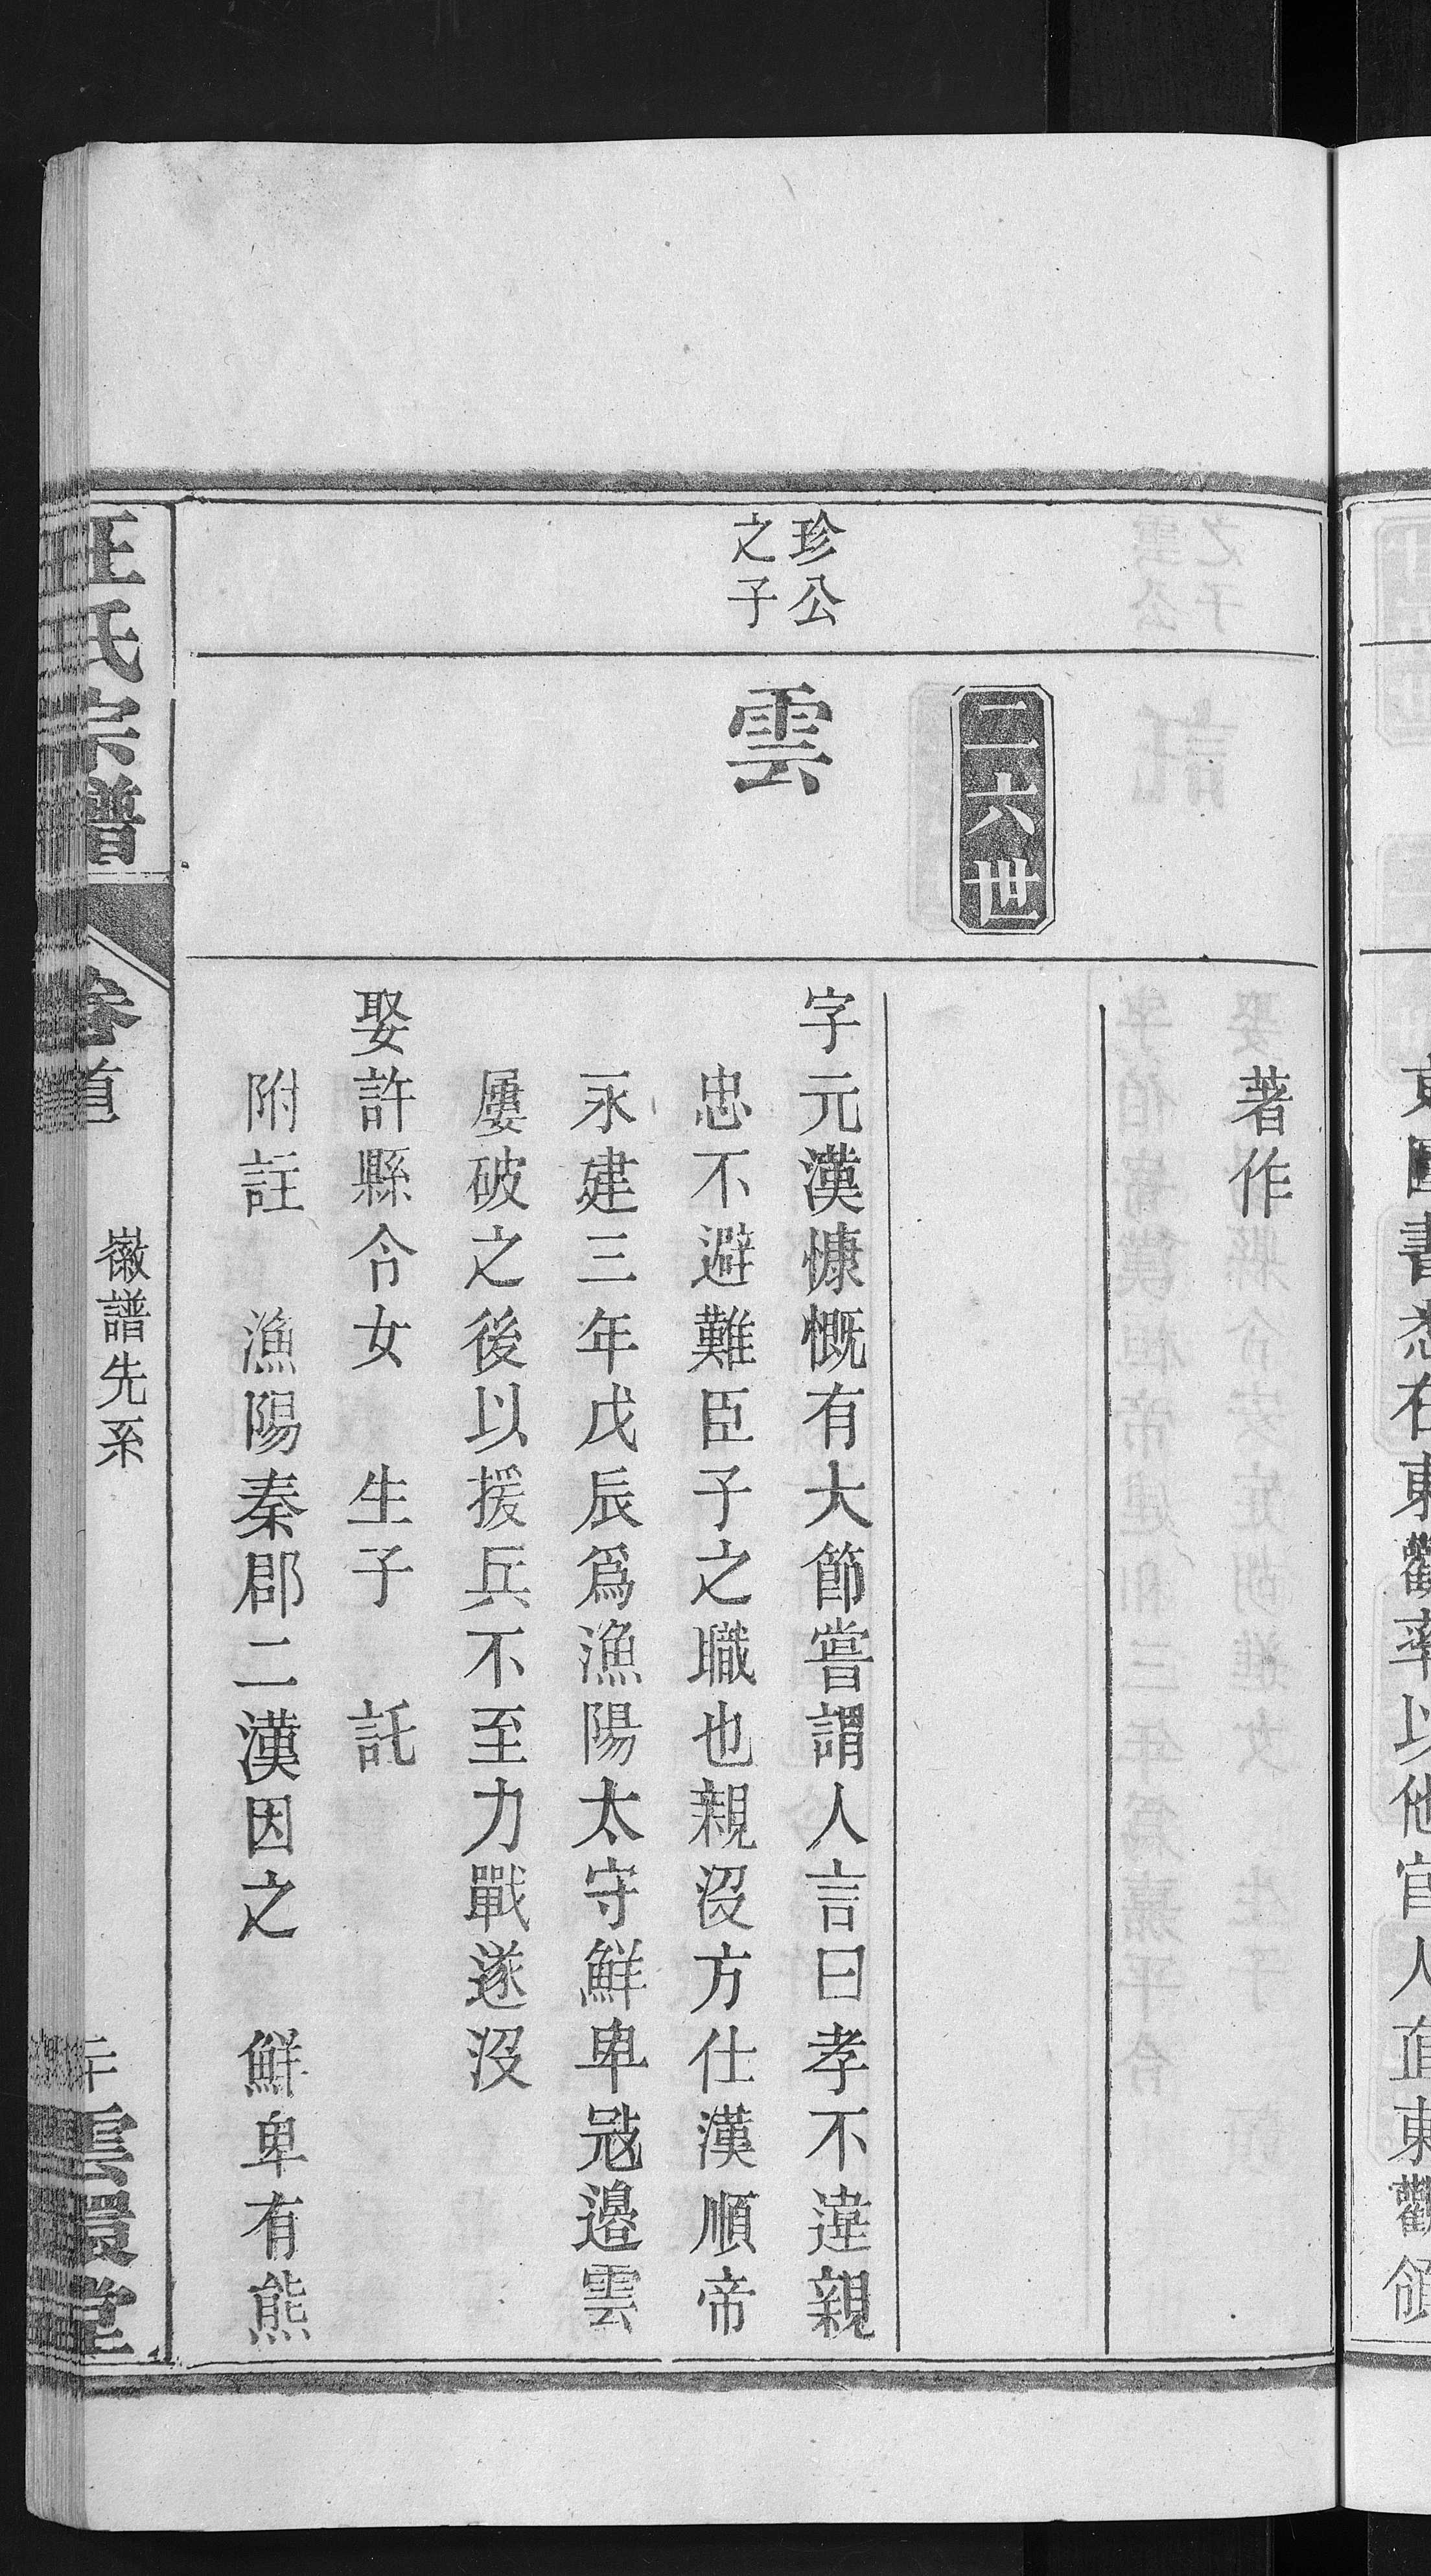 著作
二六世
珍公
之子
雲
字元漢慷慨有大節嘗謂人言曰孝不違親
忠不避難臣子之職也親沒方仕漢順帝
永建三年戊辰爲漁陽太守鮮卑㓂邉雲
屢破之後以援兵不至力戰遂沒
娶許縣令女　生子　託
附註　漁陽秦郡二漢因之　鮮卑有熊
汪氏宗譜
卷首
徽譜先系
雲環堂